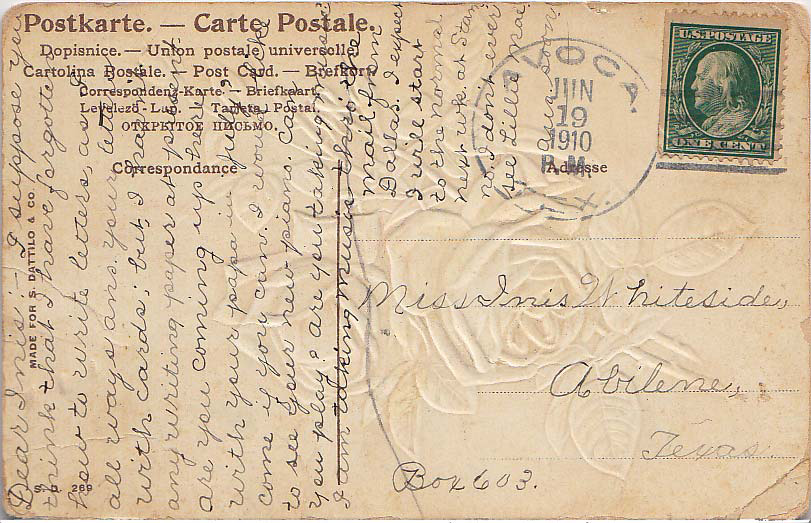 Postkarte. — Carte Postale.
Dopisnice. — Union postale universelle.
Cartolina Postale. — Post Card. — Brefkort.
Correspondenz-Karte. — Briefkaart.
Levelezö-Lap. — Tarjeta Postal.
ОТКРЫТОЕ ПИСЬМО.
Correspondance
Adresse
MADE FOR S. DATTILO & CO.
S. B. 269
U.S. POSTAGE
ONE CENT
LOCA
JUN
19
1910
P.M.
TEX.
Miss Inis Whiteside,
Abilene,
Texas.
Box 603.
Dear Inis:- I suppose you
think that I have forgotten
how to write letters, as I
all ways ans. your letters
with cards; but, I haven't
any writing paper at present.
are you coming up here
with your papa in July?
come if you can. I would like
to see your new piano. Can
you play? are you taking music
I am taking music this
mail from
Dallas. I expect
I will start
to the normal
next wk. at Stam
no, I dont ever
see Lillie Mae
ans. soon